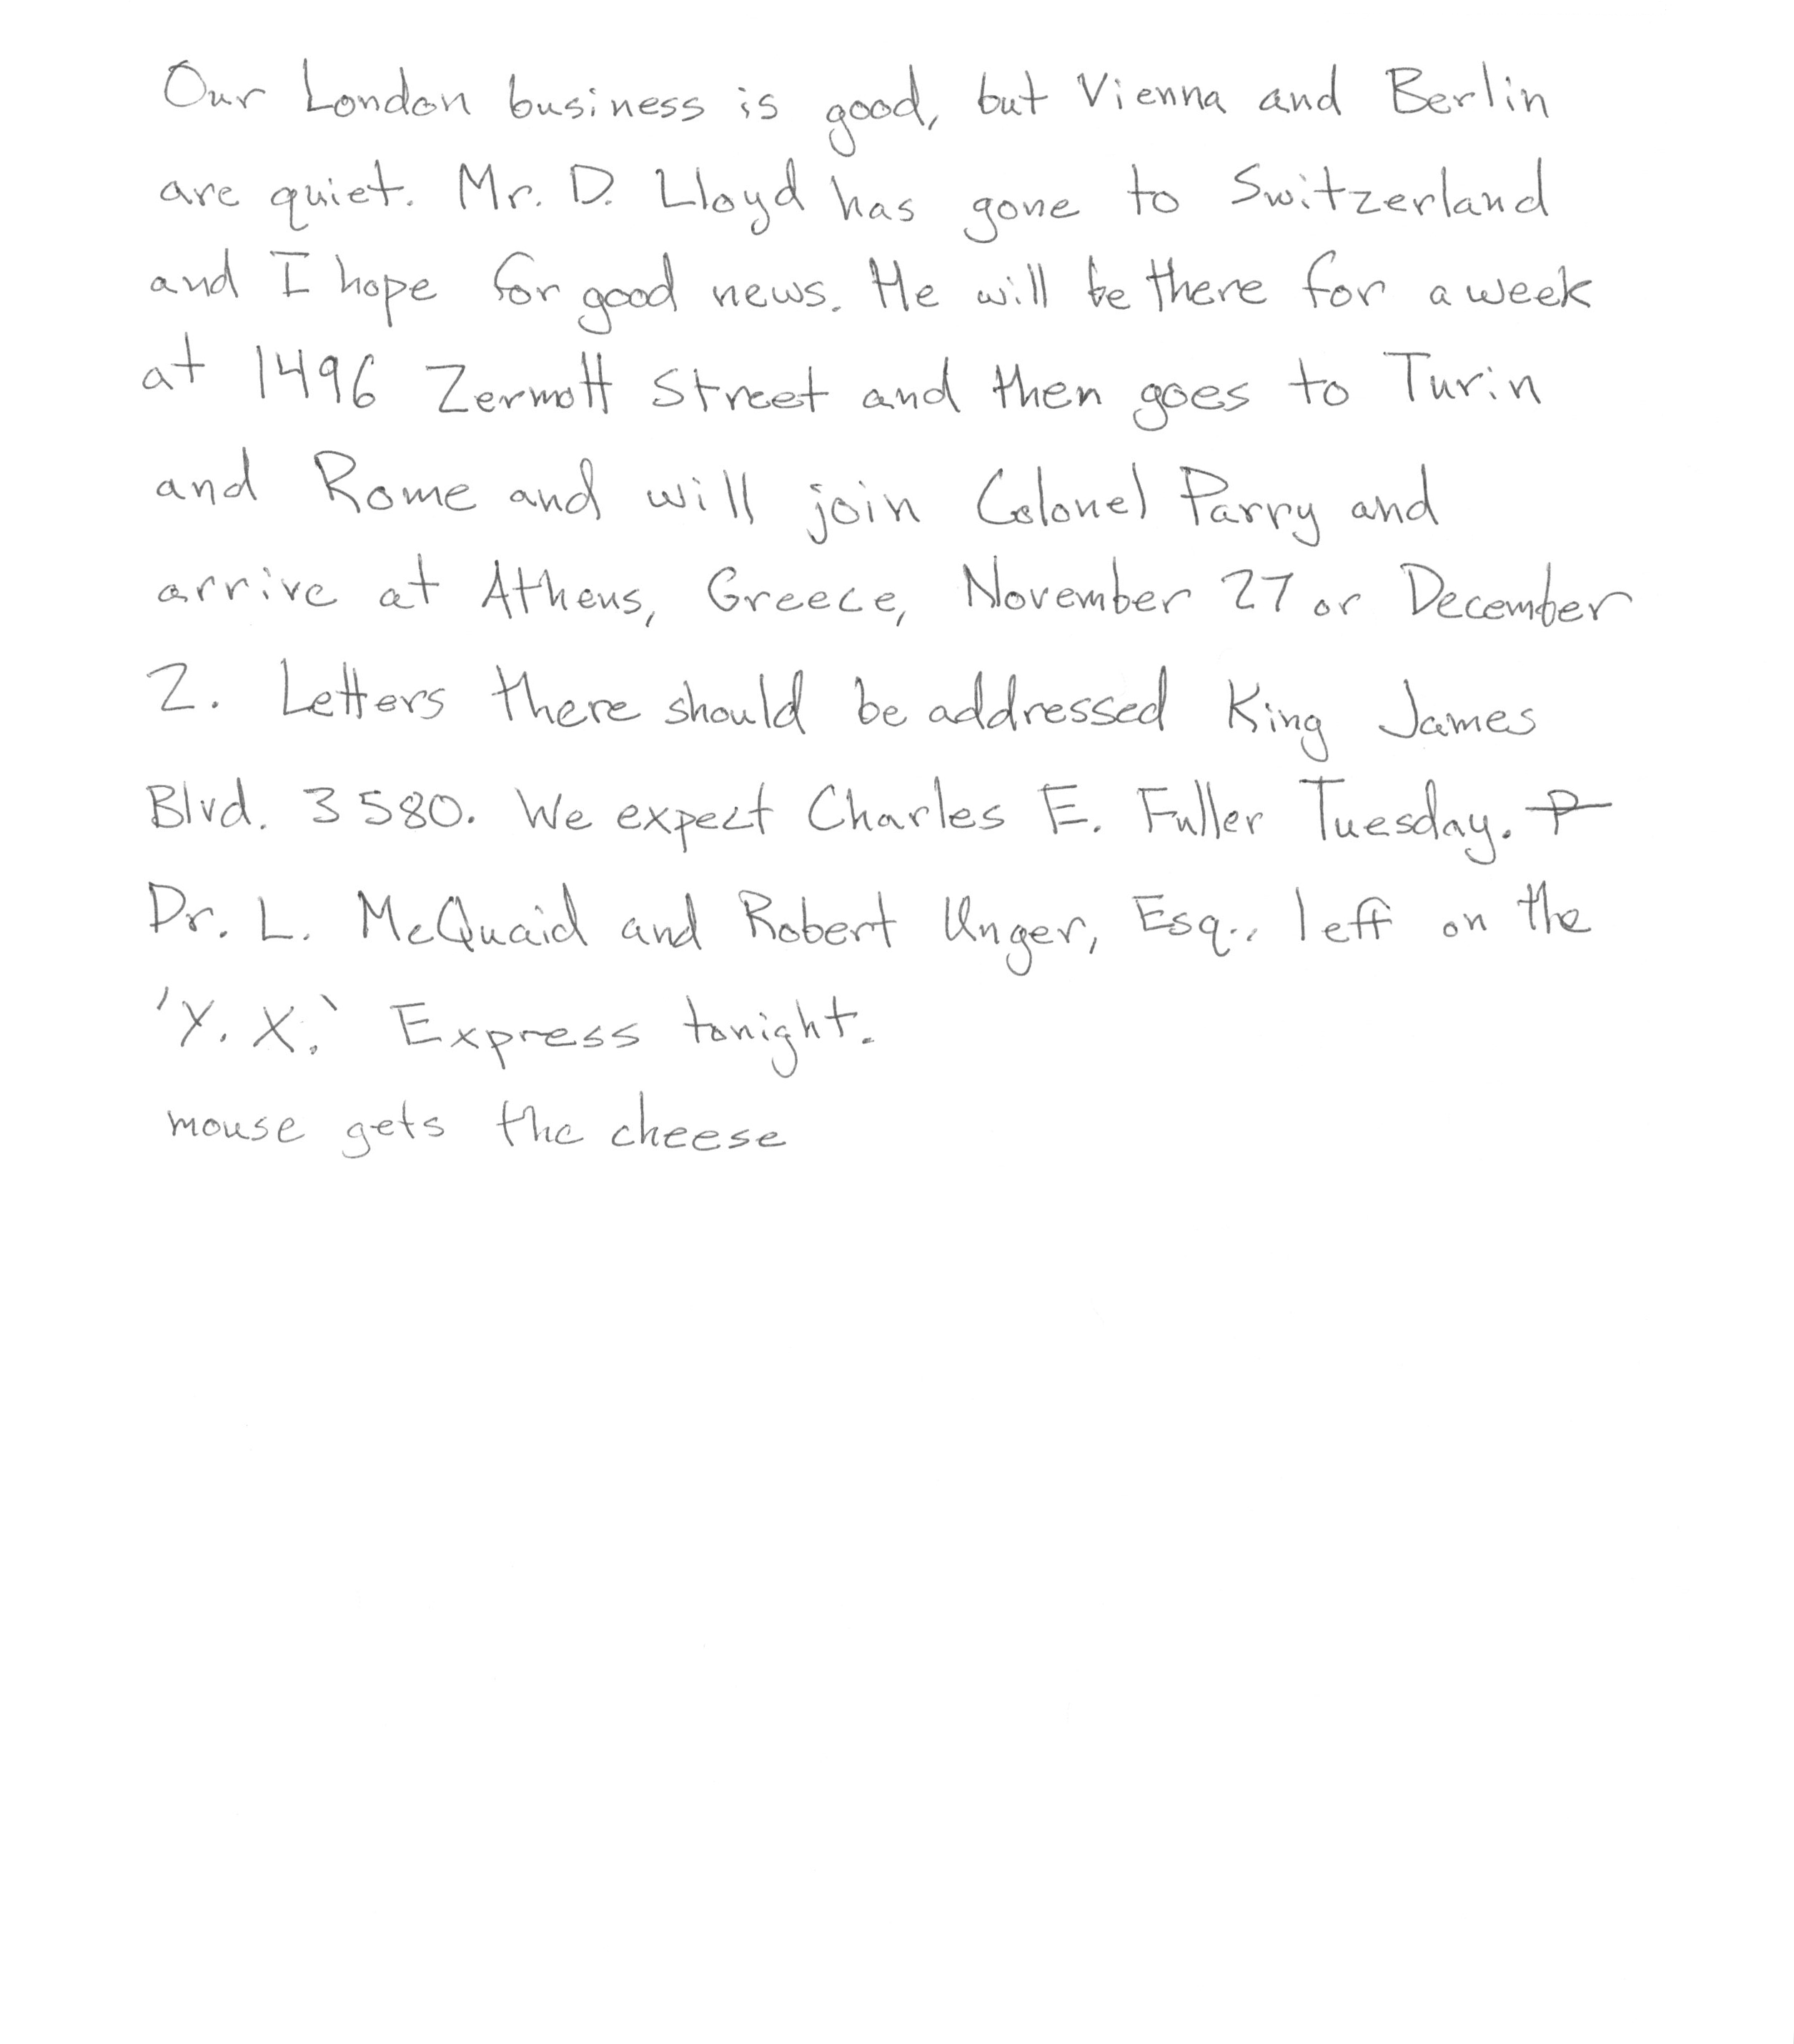 Our London business is good, but Vienna and Berlin
are quiet. Mr. D. Lloyd has gone to Switzerland
and I hope for good news. He will be there for a week
at 1496 Zermott Street and then goes to Turin
and Rome and will join Colonel Parry and
arrive at Athens, Greece, November 27 or December
2. Letters there should be addressed King James
Blvd. 3580. We expect Charles E. Fuller Tuesday. P
Dr. L. McQuaid and Robert Unger, Esq., left on the
'Y. X.' Express tonight.
mouse gets the cheese